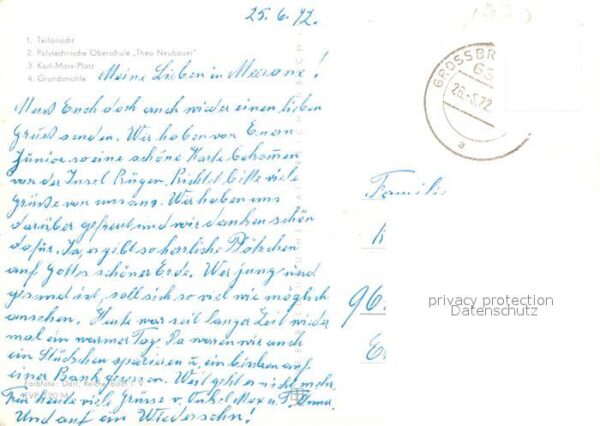 25.6.72.
1. Teilansicht
2. Polytechnische Oberschule „Theo Neubauer"
3. Karl-Marx-Platz
4. Grundsmühle
Meine Lieben in Meerane!
Muß Euch doch auch wieder einen lieben
Gruß senden. Wir haben von Euren
Junior so eine schöne Karte bekommen
von der Insel Rügen. Richtet bitte viele
Grüße von uns aus. Wir haben uns
darüber gefreut und wir danken schön
dafür. Ja, es gibt so herrliche Plätzchen
auf Gottes schöner Erde. Wer jung und
gesund ist, soll sich so viel wie möglich
ansehen. Heute war seit langer Zeit wieder
mal ein warmer Tag. Da waren wir auch
ein Stückchen spazieren u. ein bißchen auf
einer Bank gesessen. Weit geht es nicht mehr.
Für heute viele Grüsse v. Onkel Max u. T. Anna.
Und auf ein Wiedersehn!
GROSSBR
26.-6.72
a
Famili
96.
privacy protection
Datenschutz